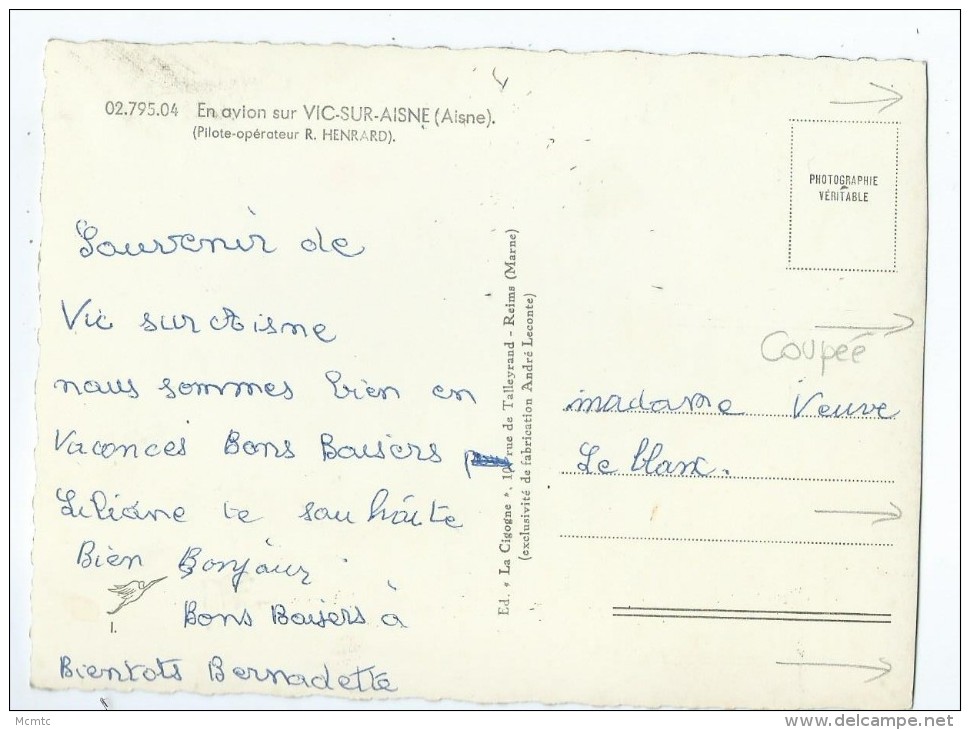 02.795.04 En avion sur VIC-SUR-AISNE (Aisne).
(Pilote-opérateur R. HENRARD).
PHOTOGRAPHIE
VÉRITABLE
Souvenir de
Vic sur Aisne
nous sommes bien en
Vacances Bons Baisers
Liliane te souhaite
Bien Bonjour
Bons Baisers à
Bientots Bernadette
1.
Ed. " La Cigogne ", rue de Talleyrand - Reims (Marne)
(exclusivité de fabrication André Leconte)
Coupée
madame Veuve
Le blanc.
Mcmtc
delcampe.net